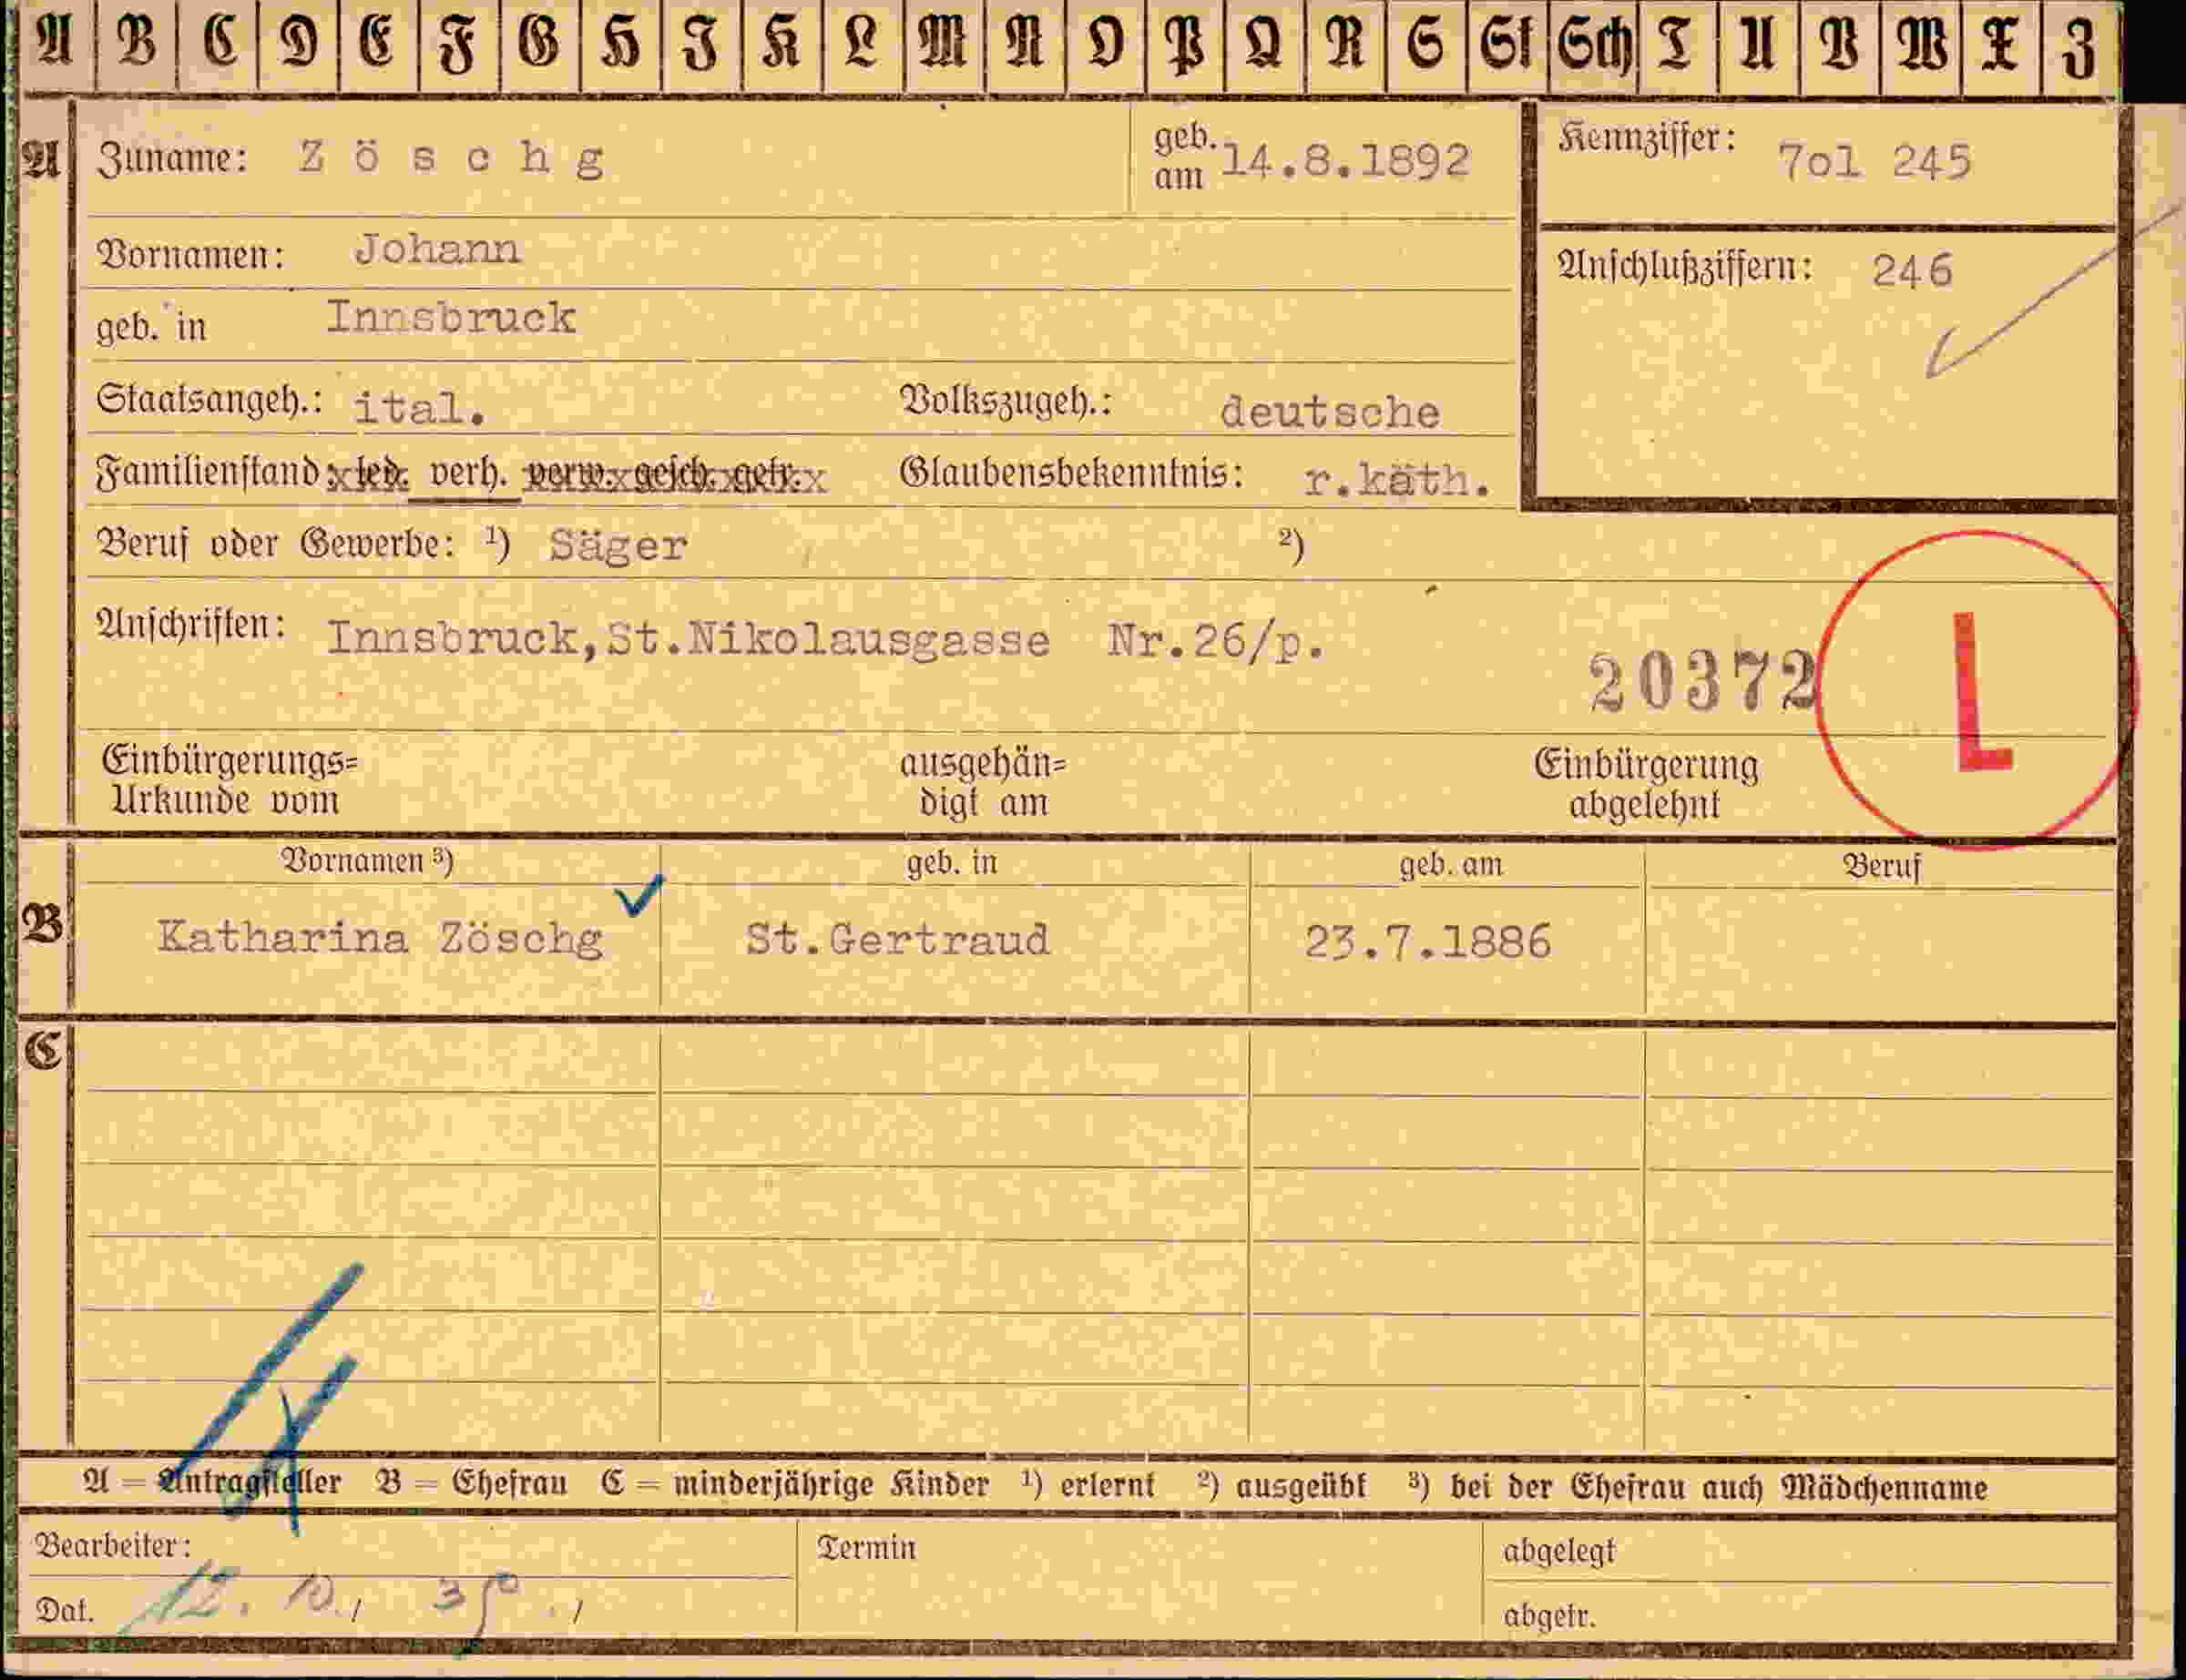 A B C D E F G H I K L M N O P Q R S St Sch T U V W X Z
A Zuname: Zöschg geb. am 14.8.1892 Kennziffer: 7ol 245
Vornamen: Johann Anschlußziffern: 246
geb. in Innsbruck
Staatsangeh.: ital. Volkszugeh.: deutsche
Familienstand led. verh. verw. gesch. getr. Glaubensbekenntnis: r.kath.
Beruf oder Gewerbe: ¹) Säger ²)
Anschriften: Innsbruck,St.Nikolausgasse Nr.26/p.
20372 L
Einbürgerungs= ausgehän= Einbürgerung
Urkunde vom digt am abgelehnt
Vornamen ³) geb. in geb. am Beruf
B Katharina Zöschg St.Gertraud 23.7.1886
C
A = Antragsteller B = Ehefrau C = minderjährige Kinder ¹) erlernt ²) ausgeübt ³) bei der Ehefrau auch Mädchenname
Bearbeiter: Termin abgelegt
Dat. 12. 10. abgetr.